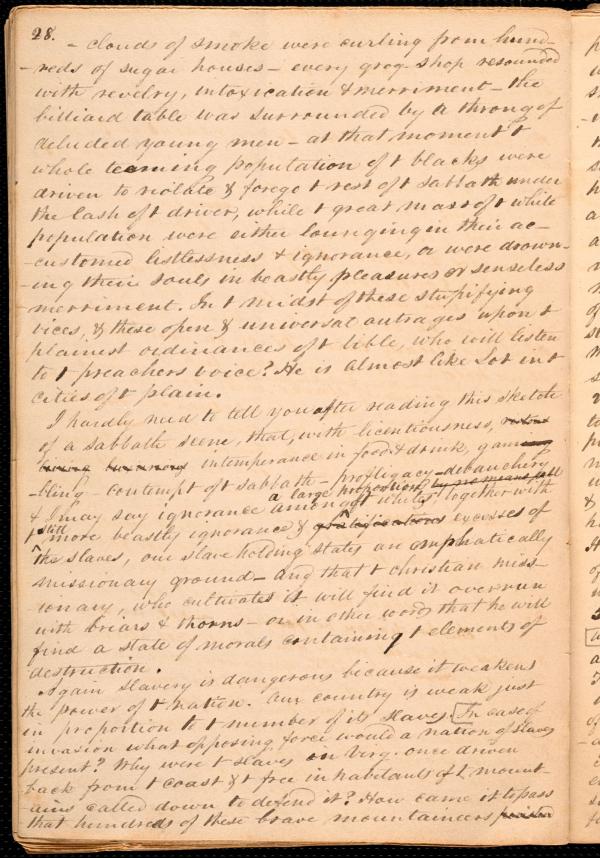 28.
- clouds of smoke were curling from hund-
-reds of sugar houses - every grog shop resounded
with revelry, intoxication & merriment - the
billiard table was surrounded by a throng of
deluded young men - at that moment t
whole teeming population of t blacks were
driven to violate & forego t rest of t Sabbath under
the lash of t driver, while t great mass of t white
population were either lounging in their ac-
-customed listlessness & ignorance, or were drown-
-ing their souls in beastly pleasures or senseless
merriment. In t midst of these stupifying
vices, & these open & universal outrages upon t
plainest ordinances of t bible, who will listen
to t preachers voice? He is almost like Lot in t
cities of t plain.
I hardly need to tell you after reading this sketch
of a Sabbath scene, that, with licentiousness,
intemperance in food & drink, gam-
-bling - contempt of t sabbath - profligacy - debauchery
a large proportion of
& I may say ignorance amongst t whites together with
still
t more beastly ignorance & excesses of
the slaves, our slave holding states are emphatically
missionary ground - and that t christian miss-
-ionary, who cultivates it will find it overrun
with briars & thorns - or in other words that he will
find a state of morals containing t elements of
destruction.
Again Slavery is dangerous because it weakens
the power of t nation. Our country is weak just
in proportion to t number of its slaves. In case of
invasion what opposing force would a nation of slaves
present? Why were t slaves in Virg. once driven
back from t coast & t free inhabitants of t mount-
-ains called down to defend it? How came it to pass
that hundreds of these brave mountaineers